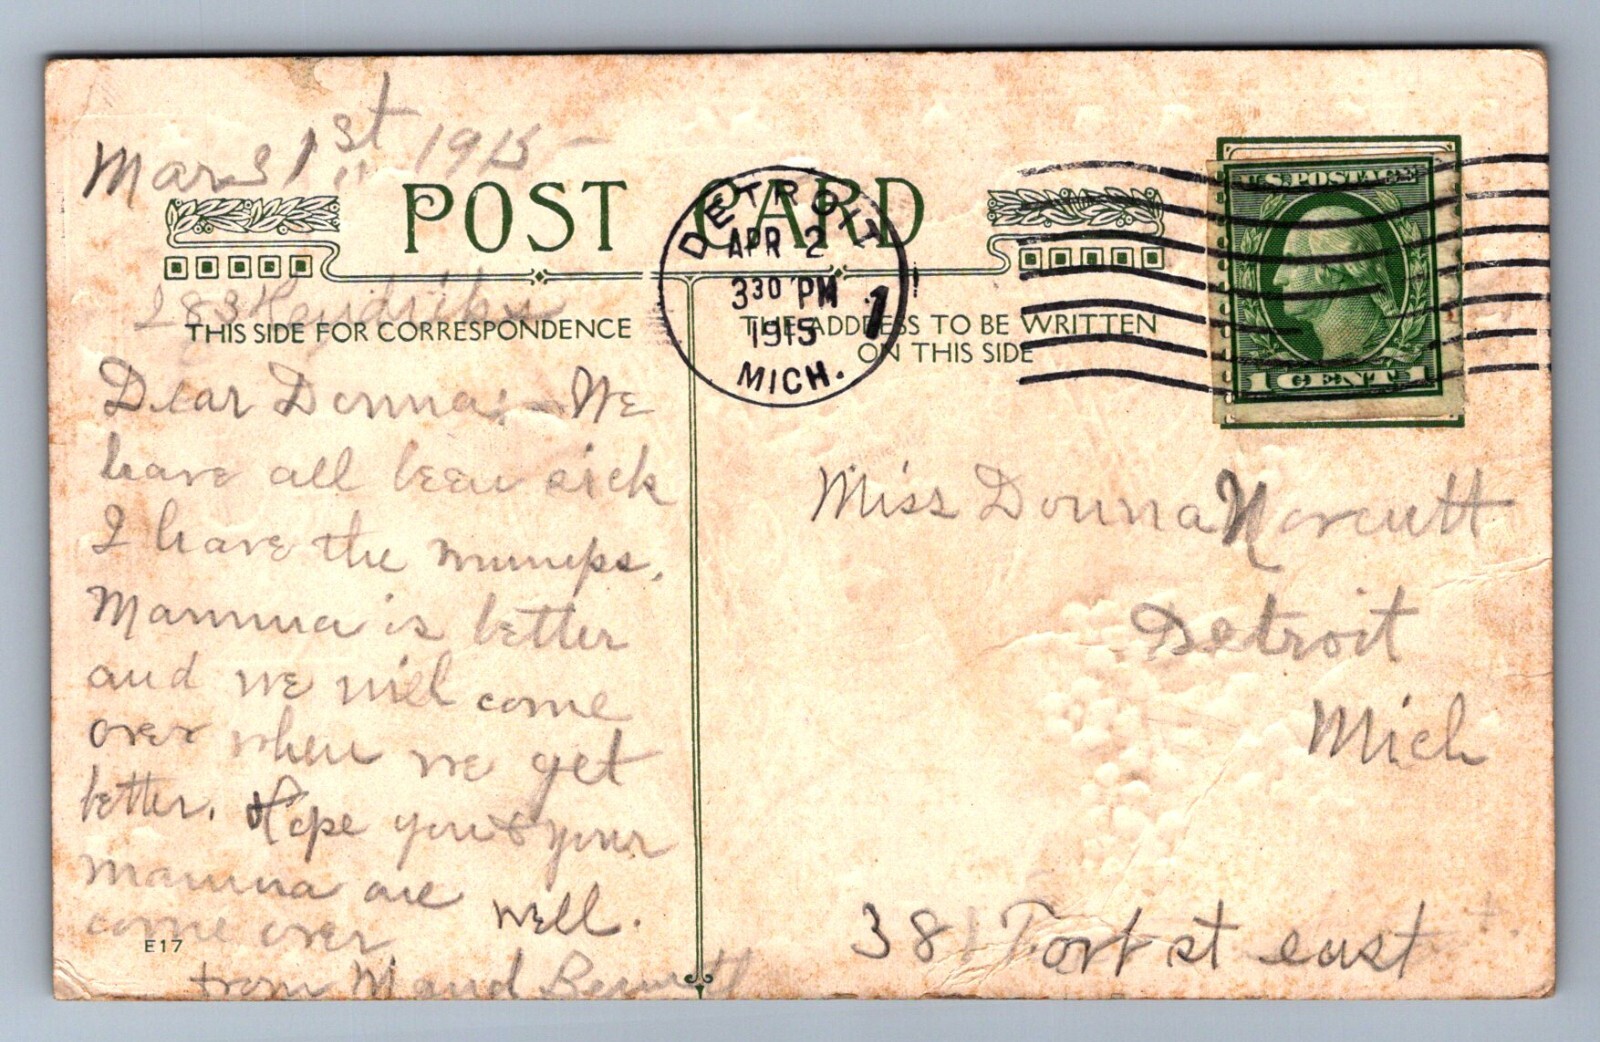 Mar 31st 1915
POST CARD
DETROIT
APR 2
330 PM
1915
MICH.
1
U.S. POSTAGE
1 CENT 1
283 Hendrike
THIS SIDE FOR CORRESPONDENCE
THE ADDRESS TO BE WRITTEN
ON THIS SIDE
Dear Donna:- We
have all been sick
I have the mumps.
Mamma is better
and we will come
over when we get
better. Hope you & your
mamma are well.
come over
from Maud Bennett
E17
Miss Donna Norcutt
Detroit
Mich
381 Fort st east